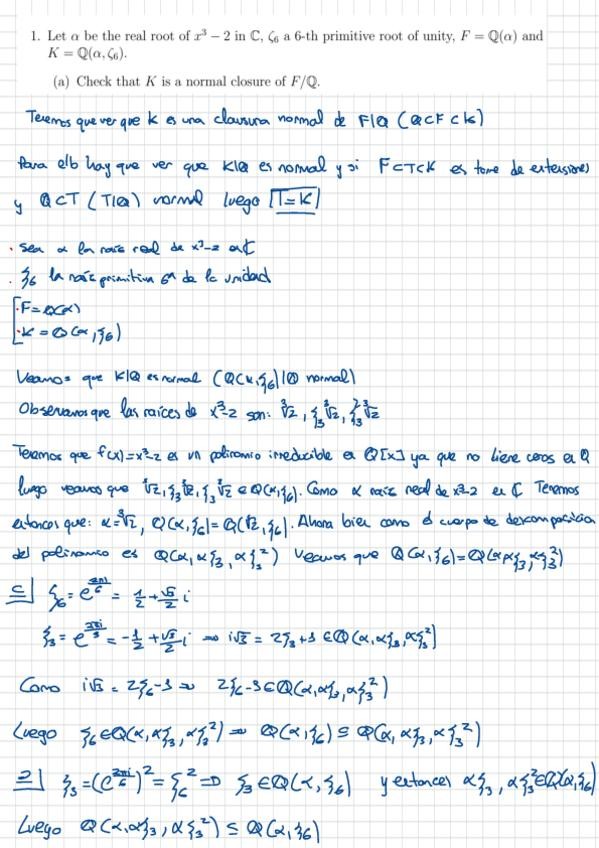 1. Let α be the real root of x³ − 2 in ℂ, ζ₆ a 6-th primitive root of unity, F = ℚ(α) and
K = ℚ(α, ζ₆).
(a) Check that K is a normal closure of F/ℚ.
Tenemos que ver que K es una clausura normal de F|ℚ (ℚ⊂F⊂K)
Para ello hay que ver que K|ℚ es normal y si F⊂T⊂K es torre de extensiones
y ℚ⊂T (T|ℚ) normal luego T=K
· Sea α la raíz real de x³-2 en ℂ
· ξ₆ la raíz primitiva 6ª de la unidad
· F = ℚ(α)
· K = ℚ(α, ξ₆)
Veamos que K|ℚ es normal (ℚ(α, ξ₆)|ℚ normal)
Observamos que las raíces de x³-2 son: ∛2, ξ₃∛2, ξ₃²∛2
Tenemos que f(x)=x³-2 es un polinomio irreducible en ℚ[x] ya que no tiene ceros en ℚ
luego veamos que ∛2, ξ₃∛2, ξ₃²∛2 ∈ ℚ(α, ξ₆). Como α raíz real de x³-2 en ℂ Tenemos
entonces que: α=∛2, ℚ(α, ξ₆)=ℚ(∛2, ξ₆). Ahora bien como el cuerpo de descomposición
del polinomio es ℚ(α, αξ₃, αξ₃²) Veamos que ℚ(α, ξ₆)=ℚ(α, αξ₃, αξ₃²)
⊆| ξ₆ = e^(2πi/6) = 1/2 + √3/2 i
ξ₃ = e^(2πi/3) = -1/2 + √3/2 i ⇒ i√3 = 2ξ₃+1 ∈ ℚ(α, αξ₃, αξ₃²)
Como i√3 = 2ξ₆-1 ⇒ 2ξ₆-1 ∈ ℚ(α, αξ₃, αξ₃²)
Luego ξ₆ ∈ ℚ(α, αξ₃, αξ₃²) ⇒ ℚ(α, ξ₆) ⊆ ℚ(α, αξ₃, αξ₃²)
⊇| ξ₃ = (e^(2πi/6))² = ξ₆² ⇒ ξ₃ ∈ ℚ(α, ξ₆) y entonces αξ₃, αξ₃² ∈ ℚ(α, ξ₆)
Luego ℚ(α, αξ₃, αξ₃²) ⊆ ℚ(α, ξ₆)